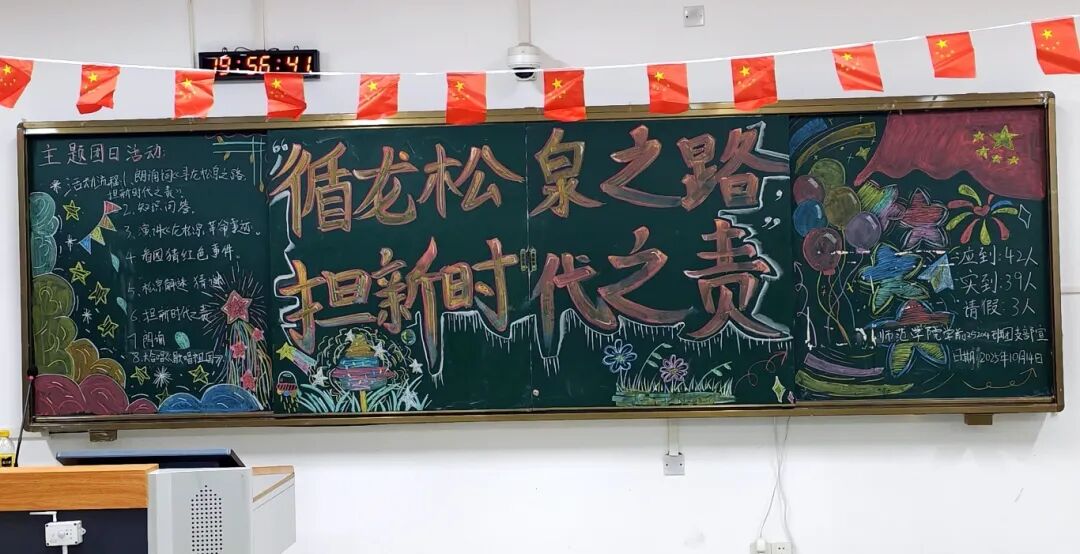 19:56:41
主题团日活动:
活动流程:1.朗诵词《寻龙松泉之路,
担新时代之责》
2.知识问答。
3.演讲《龙松泉革命事迹。
4.看图猜红色事件。
5.松泉解迷 猜谜
6.担新时代之责
7.朗诵
8.大合唱《歌唱祖国》
“循龙松泉之路,
担新时代之责”
应到:42人
实到:39人
请假:3人
师范学院学前
团支部宣
日期:2025年10月14日